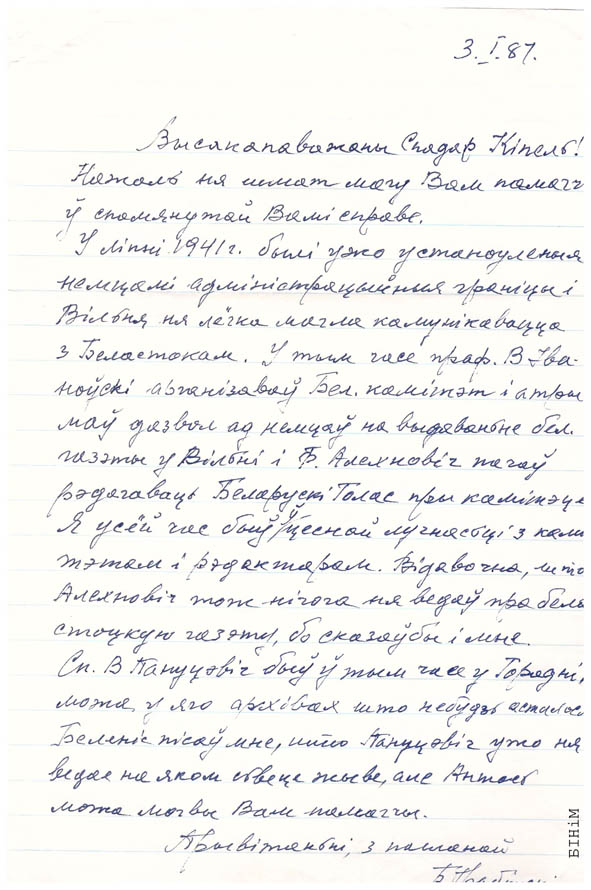 3.I.87.
Высакапаважаны Спадар Кіпель!
Нажаль ня шмат магу Вам памагч
ў спамянутай Вамі справе.
У ліпні 1941 г. былі ужо устаноўленыя
немцамі адміністрацыйныя граніцы і
Вільня ня лёгка магла камунікавацца
з Беластокам. У тым часе праф. В Іва-
ноўскі арганізаваў Бел. камітэт і атры
маў дазвол ад немцаў на выдаваньне бел.
газэты у Вільні і Ф. Аляхновіч пачаў
рэдагаваць Беларускі Голас пры камітэце
Я усёй час быў ў цеснай лучнасьці з камі
тэтам і рэдактарам. Відавочна, што
Аляхновіч тож нічога ня ведаў пра бела
стоцкую газэту, бо сказаўбы і мне.
Сп. В Пануцэвіч быў ў тым часе у Горадні,
можа у яго архівах што небудзь асталось
Беленіс пісаў мне, што Пануцэвіч ужо ня
ведае на яком сьвеце жыве, але Антось
можа могбы Вам памагчы.
Прывітаньні, з пашанай
БІНіМ